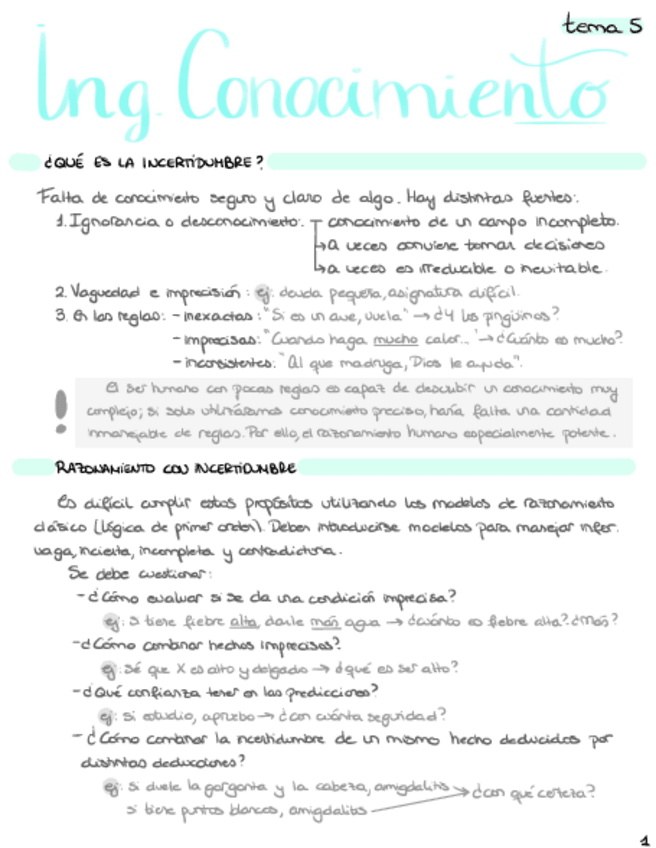 tema 5
Ing. Conocimiento
¿QUÉ ES LA INCERTIDUMBRE?
Falta de conocimiento seguro y claro de algo. Hay distintas fuentes:
1. Ignorancia o desconocimiento: conocimiento de un campo incompleto.
→ a veces conviene tomar decisiones
→ a veces es irreducible o inevitable.
2. Vaguedad e imprecisión: ej: deuda pequeña, asignatura difícil.
3. En las reglas: - inexactas: "Si es un ave, vuela" → ¿Y los pingüinos?
- imprecisas: "Cuando haga mucho calor..." → ¿Cuánto es mucho?
- inconsistentes: "Al que madruga, Dios le ayuda".
! El ser humano con pocas reglas es capaz de descubrir un conocimiento muy
complejo; si solo utilizáramos conocimiento preciso, haría falta una cantidad
inmanejable de reglas. Por ello, el razonamiento humano especialmente potente.
RAZONAMIENTO CON INCERTIDUMBRE
Es difícil cumplir estos propósitos utilizando los modelos de razonamiento
clásico (lógica de primer orden). Deben introducirse modelos para manejar infor.
vaga, incierta, incompleta y contradictoria.
Se debe cuestionar:
- ¿Cómo evaluar si se da una condición imprecisa?
ej: si tiene fiebre alta, darle más agua → ¿cuánto es fiebre alta? ¿más?
- ¿Cómo combinar hechos imprecisos?
ej: sé que X es alto y delgado → ¿qué es ser alto?
- ¿Qué confianza tener en las predicciones?
ej: si estudio, apruebo → ¿con cuánta seguridad?
- ¿Cómo combinar la incertidumbre de un mismo hecho deducidos por
distintas deducciones?
ej: si duele la garganta y la cabeza, amigdalitis → ¿con qué certeza?
si tiene puntos blancos, amigdalitis
1